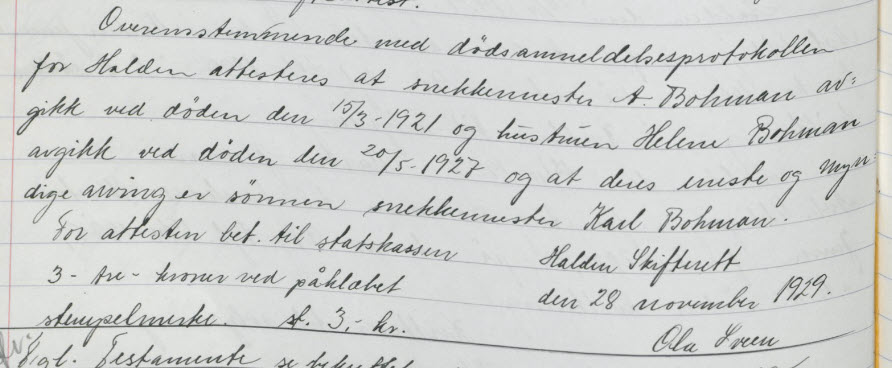 Overensstemmende med dødsanmeldelsesprotokollen
for Halden attesteres at snekkermester A. Bohman av=
gikk ved døden den 15/3-1921 og hustruen Helene Bohman
avgikk ved døden den 20/5-1927 og at deres eneste og myn=
dige arving er sønnen snekkermester Karl Bohman.
For attesten bet. til statskassen
3- tre- kroner ved påklæbet
stempelmerke. st. 3,- kr.
Halden Skifterett
den 28 november 1929.
Ola Sveen
Testamente se